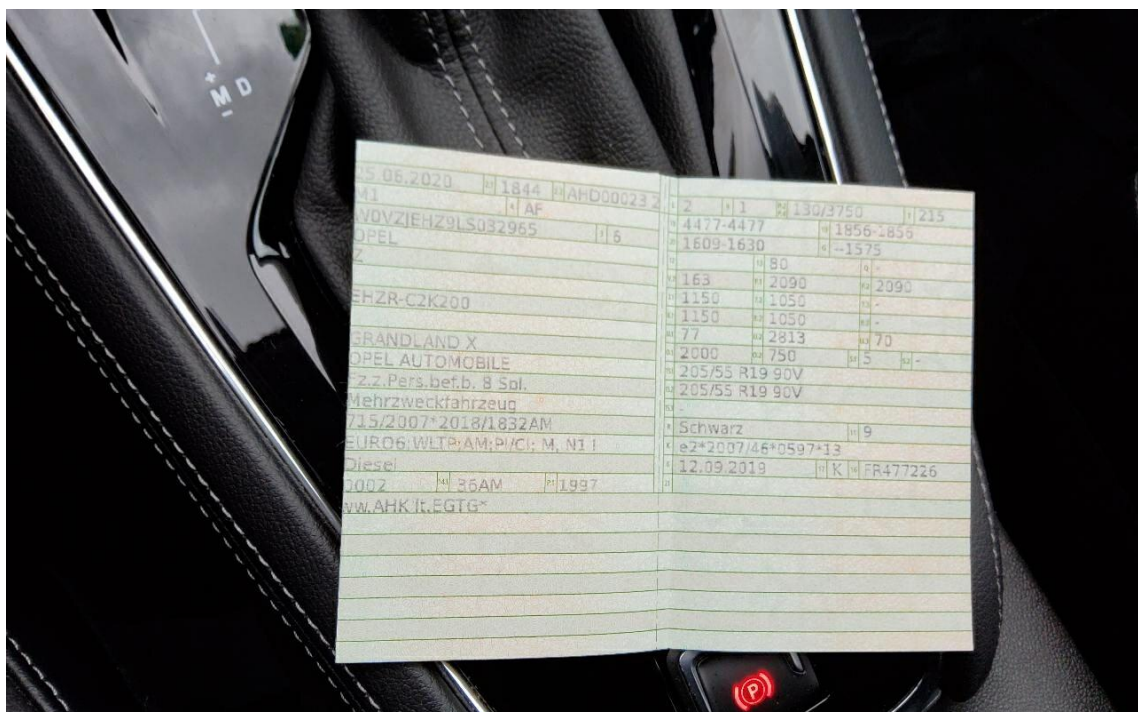 +
M D
–
25.06.2020 1844 AHD00023 2
M1 AF
W0VZJEHZ9LS032965 6
OPEL
Z
EHZR-C2K200
GRANDLAND X
OPEL AUTOMOBILE
Fz.z.Pers.bef.b. 8 Spl.
Mehrzweckfahrzeug
715/2007*2018/1832AM
EURO6;WLTP;AM;PI/CI; M, N1 I
Diesel
0002 36AM 1997
ww.AHK lt.EGTG*
2 1 130/3750 215
4477-4477 1856-1856
1609-1630 --1575
80 -
163 2090 2090
1150 1050 -
1150 1050 -
77 2813 70
2000 750 5 -
205/55 R19 90V
205/55 R19 90V
-
Schwarz 9
e2*2007/46*0597*13
12.09.2019 K FR477226
P